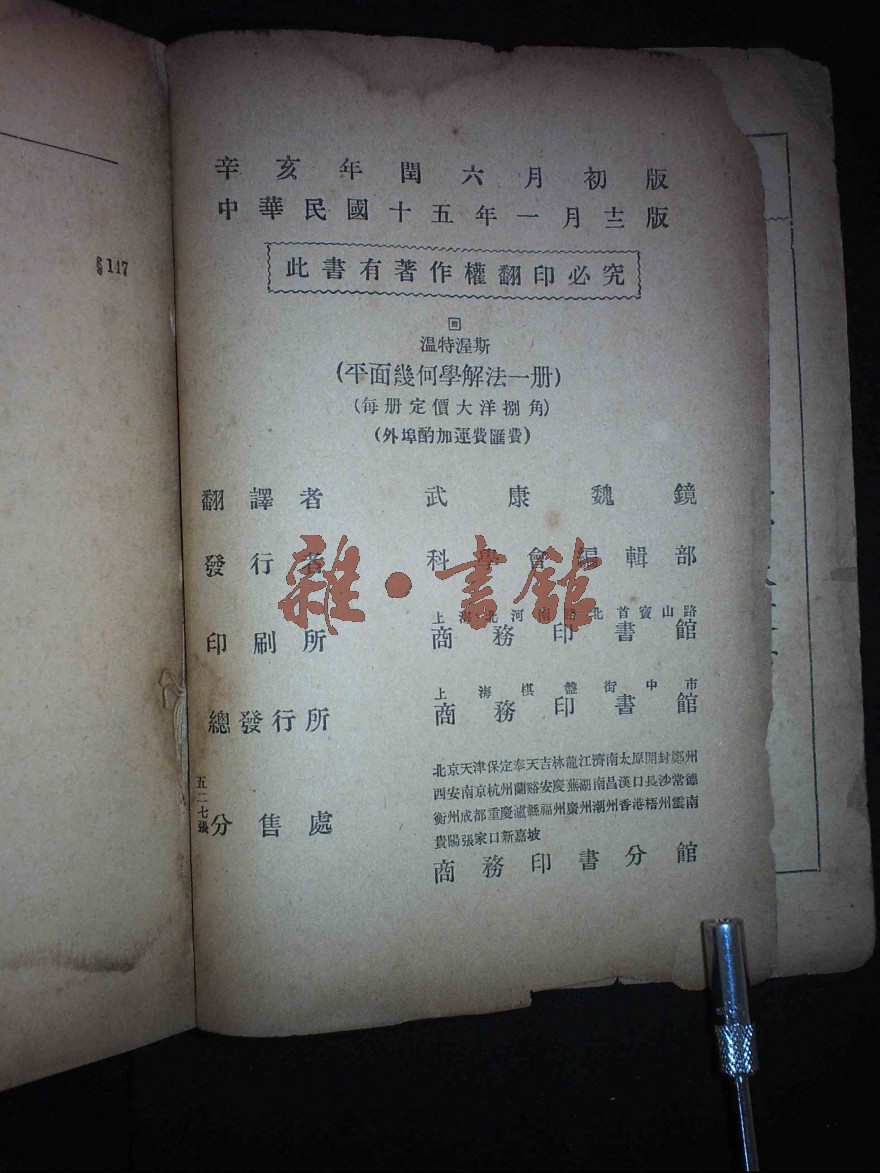 §147
辛亥年閏六月初版
中華民國十五年一月十二版
此書有著作權翻印必究
溫特渥斯
(平面幾何學解法一册)
(每册定價大洋捌角)
(外埠酌加運費匯費)
翻譯者 武康魏鏡
發行者 科學會編輯部
上海北河南路北首寶山路
印刷所 商務印書館
上海棋盤街中市
總發行所 商務印書館
北京天津保定奉天吉林龍江濟南太原開封鄭州
西安南京杭州蘭谿安慶蕪湖南昌漢口長沙常德
衡州成都重慶瀘縣福州廣州潮州香港梧州雲南
貴陽張家口新嘉坡
分售處 商務印書分館
五二七張
雜·書館